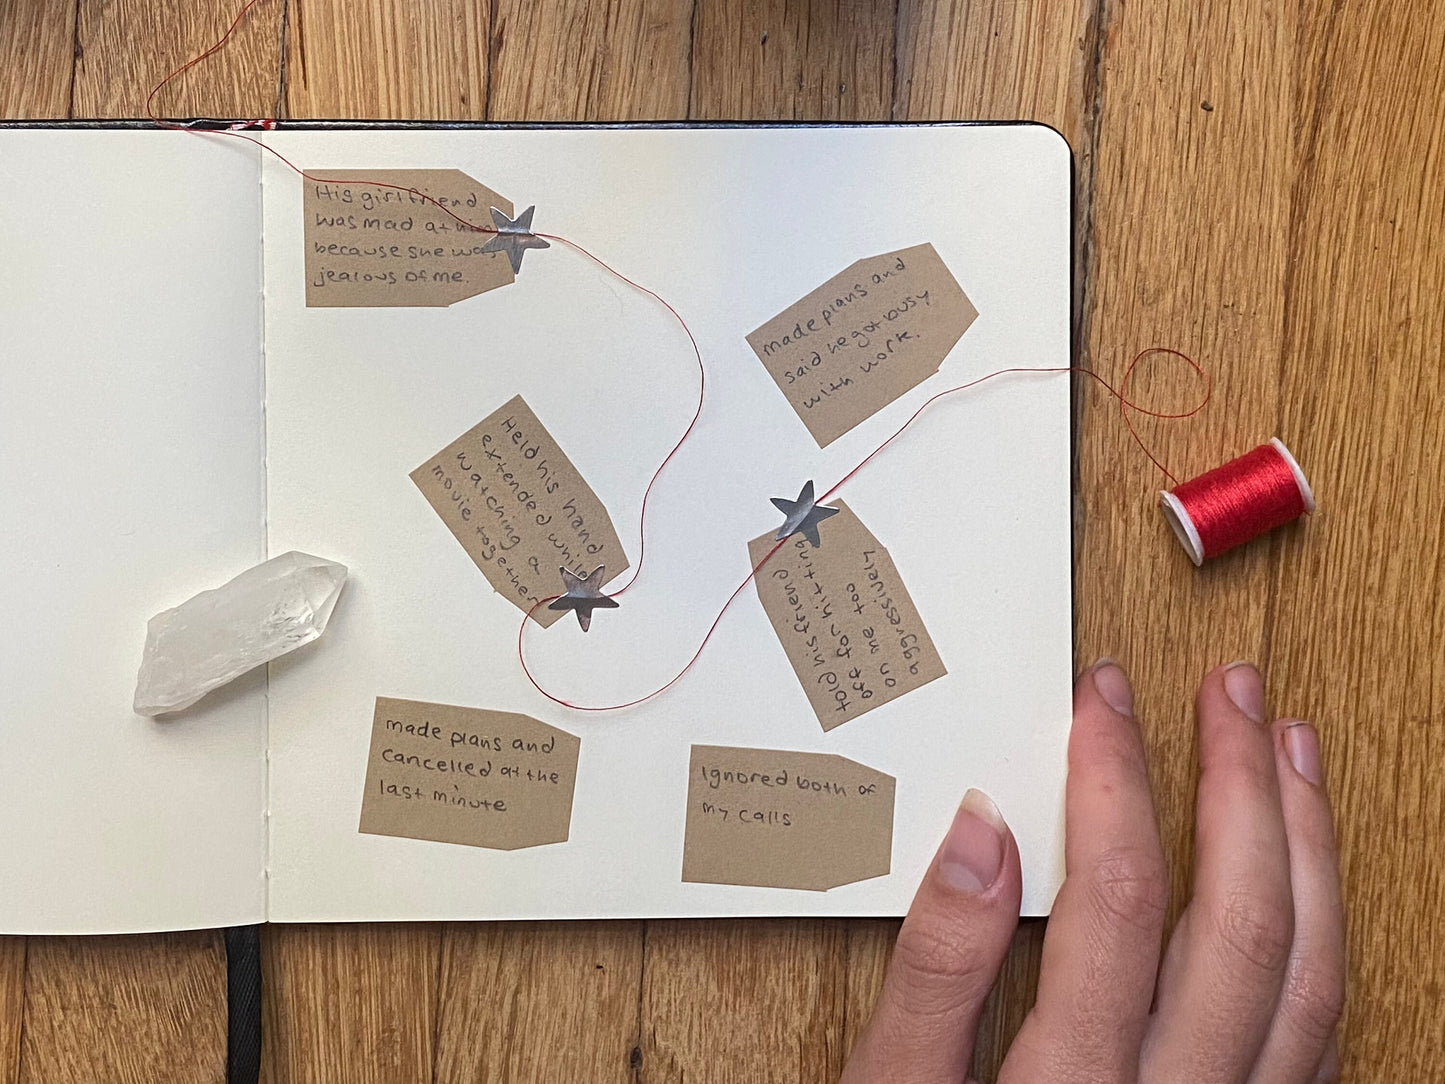 His girlfriend
was mad at
because she was
jealous of me.
made plans and
said he got busy
with work.
Held his hand
extended while
watching a
movie together
told his friend
off for hitting
on me too
aggressively
made plans and
cancelled at the
last minute
Ignored both of
my calls